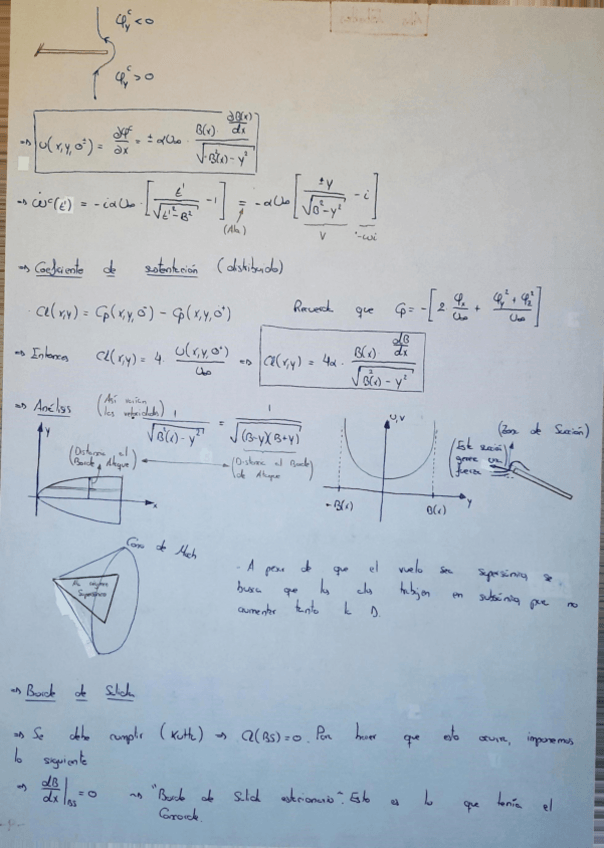 φ_y^c < 0
φ_y^c > 0
⇒ u(x,y,0^±) = ∂φ^c/∂x = ± αU∞ · B(x) ∂B(x)/dx / √(B²(x) - y²)
⇒ ẇ^c(t') = -iαU∞ · [t'/√(t'² - B²) - 1] = -αU∞ [±y/√(B² - y²) - i]
(Ala)
v
-wi
⇒ Coeficiente de sustentación (distribuido)
· Cl(x,y) = Cp(x,y,0^-) - Cp(x,y,0^+) Recuerda que Cp = -[2 φ_x/U∞ + (φ_y² + φ_z²)/U∞]
⇒ Entonces Cl(x,y) = 4 · u(x,y,0^+)/U∞ ⇒ Cl(x,y) = 4α · B(x) dB/dx / √(B²(x) - y²)
⇒ Análisis (Así varían las velocidades) 1/√(B²(x) - y²) = 1/√((B-y)(B+y))
y
(Distancia al Borde Ataque)
(Distancia al Borde de Ataque)
x
U,V
-B(x) B(x) y
(Zona de Succión)
(Esta succión genera una fuerza)
Cono de Mach
Supersónico
· A pesar de que el vuelo sea supersónico se
busca que las alas trabajen en subsónico para no
aumentar tanto la D.
⇒ Borde de Salida
⇒ Se debe cumplir (Kutta) ⇒ Cl(BS) = 0. Para hacer que esto ocurra, imponemos
lo siguiente
⇒ dB/dx|_BS = 0 ⇒ "Borde de Salida estacionario". Esto es lo que tenía el
Concorde.